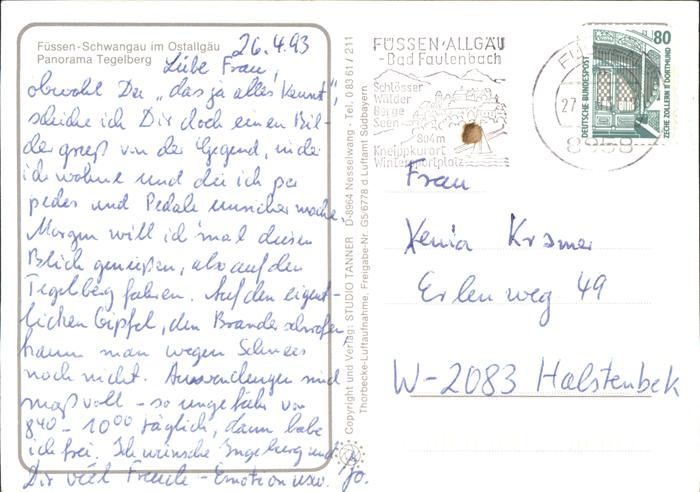 Füssen-Schwangau im Ostallgäu
Panorama Tegelberg
26.4.93
Liebe Frau,
obwohl Du „das ja alles kennst",
schicke ich Dir doch einen Bil-
dergruß von der Gegend, in der
ich wohne und die ich per
pedes und Pedale unsicher mache.
Morgen will ich 'mal diesen
Blick genießen, also auf den
Tegelberg fahren. Auf den eigent-
lichen Gipfel, den Brandnerschrofen
kann man wegen Schnees
noch nicht. Anwendungen sind
maßvoll - so ungefähr von
8⁴⁰ - 10⁰⁰ täglich, dann habe
ich frei. Ich wünsche Ingeborg und
Dir viel Freude - Emotion usw. Jo.
Copyright und Verlag: STUDIO TANNER D-8964 Nesselwang - Tel. 0 83 61 / 211
Thorbecke-Luftaufnahme, Freigabe-Nr. G5/6778 d. Luftamt Südbayern
FÜSSEN·ALLGÄU
-Bad Faulenbach
Schlösser
Wälder
Berge
Seen
804m
Kneippkurort
Wintersportplatz
27.
8958
80
DEUTSCHE BUNDESPOST
ZECHE ZOLLERN II DORTMUND
Frau
Xenia Kramer
Erlenweg 49
W-2083 Halstenbek